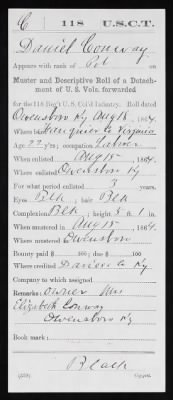 C | 118 | U.S.C.T.
Daniel Conway
Appears with rank of Pvt on
Muster and Descriptive Roll of a Detachment of U. S. Vols. forwarded
for the 118 Reg't U. S. Col'd Infantry. Roll dated
Owensboro Ky Aug 18, 1864.
Where born Fauquier Co Virginia
Age 22 y'rs; occupation Laborer
When enlisted Aug 18, 1864.
Where enlisted Owensboro Ky
For what period enlisted 3 years.
Eyes Blk; hair Blk
Complexion Blk; height 5 ft. 1 in.
When mustered in Aug 18, 1864.
Where mustered in Owensboro
Bounty paid $ 100; due $ 100
Where credited Daviess Co Ky
Company to which assigned
Remarks: Owner Mrs
Elizabeth Conway
Owensboro Ky
Book mark:
Black
Copyist.